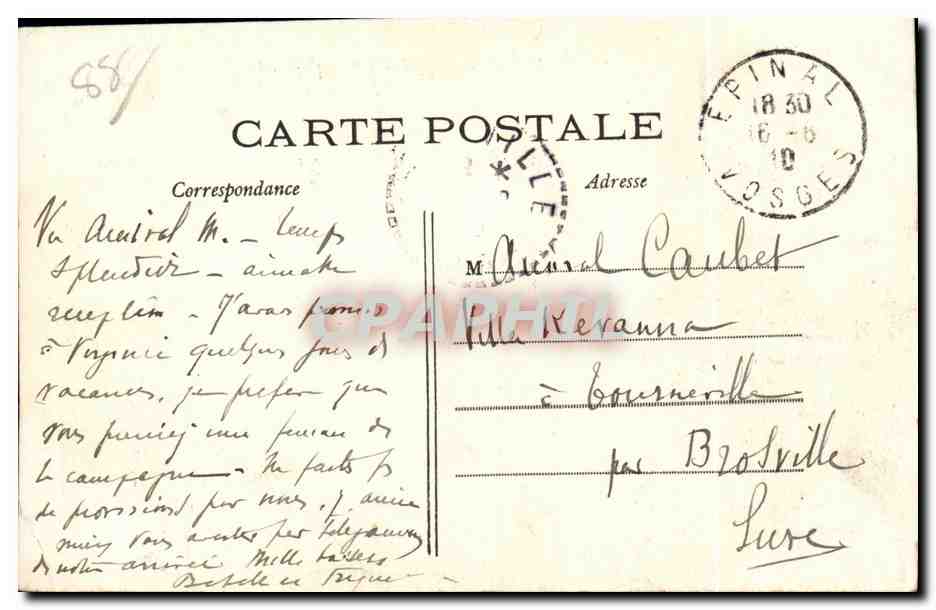 88
CARTE POSTALE
Correspondance
Adresse
EPINAL
18 30
16 - 6
10
VOSGES
ILLE
*
Vu Amiral M. - temps
splendide - aimable
reception - J'avais promis
à Virginie quelques jours de
vacances, je prefere que
vous preniez une femme de
la campagne - Ne faites ps
de provisions pour nous, j'aime
mieux vous avertir par télégramme
de notre arrivée Mille baisers
M Amiral Caubet
Villa Kevanna
à Tourneville
par Brosville
Eure
CPAPHIL